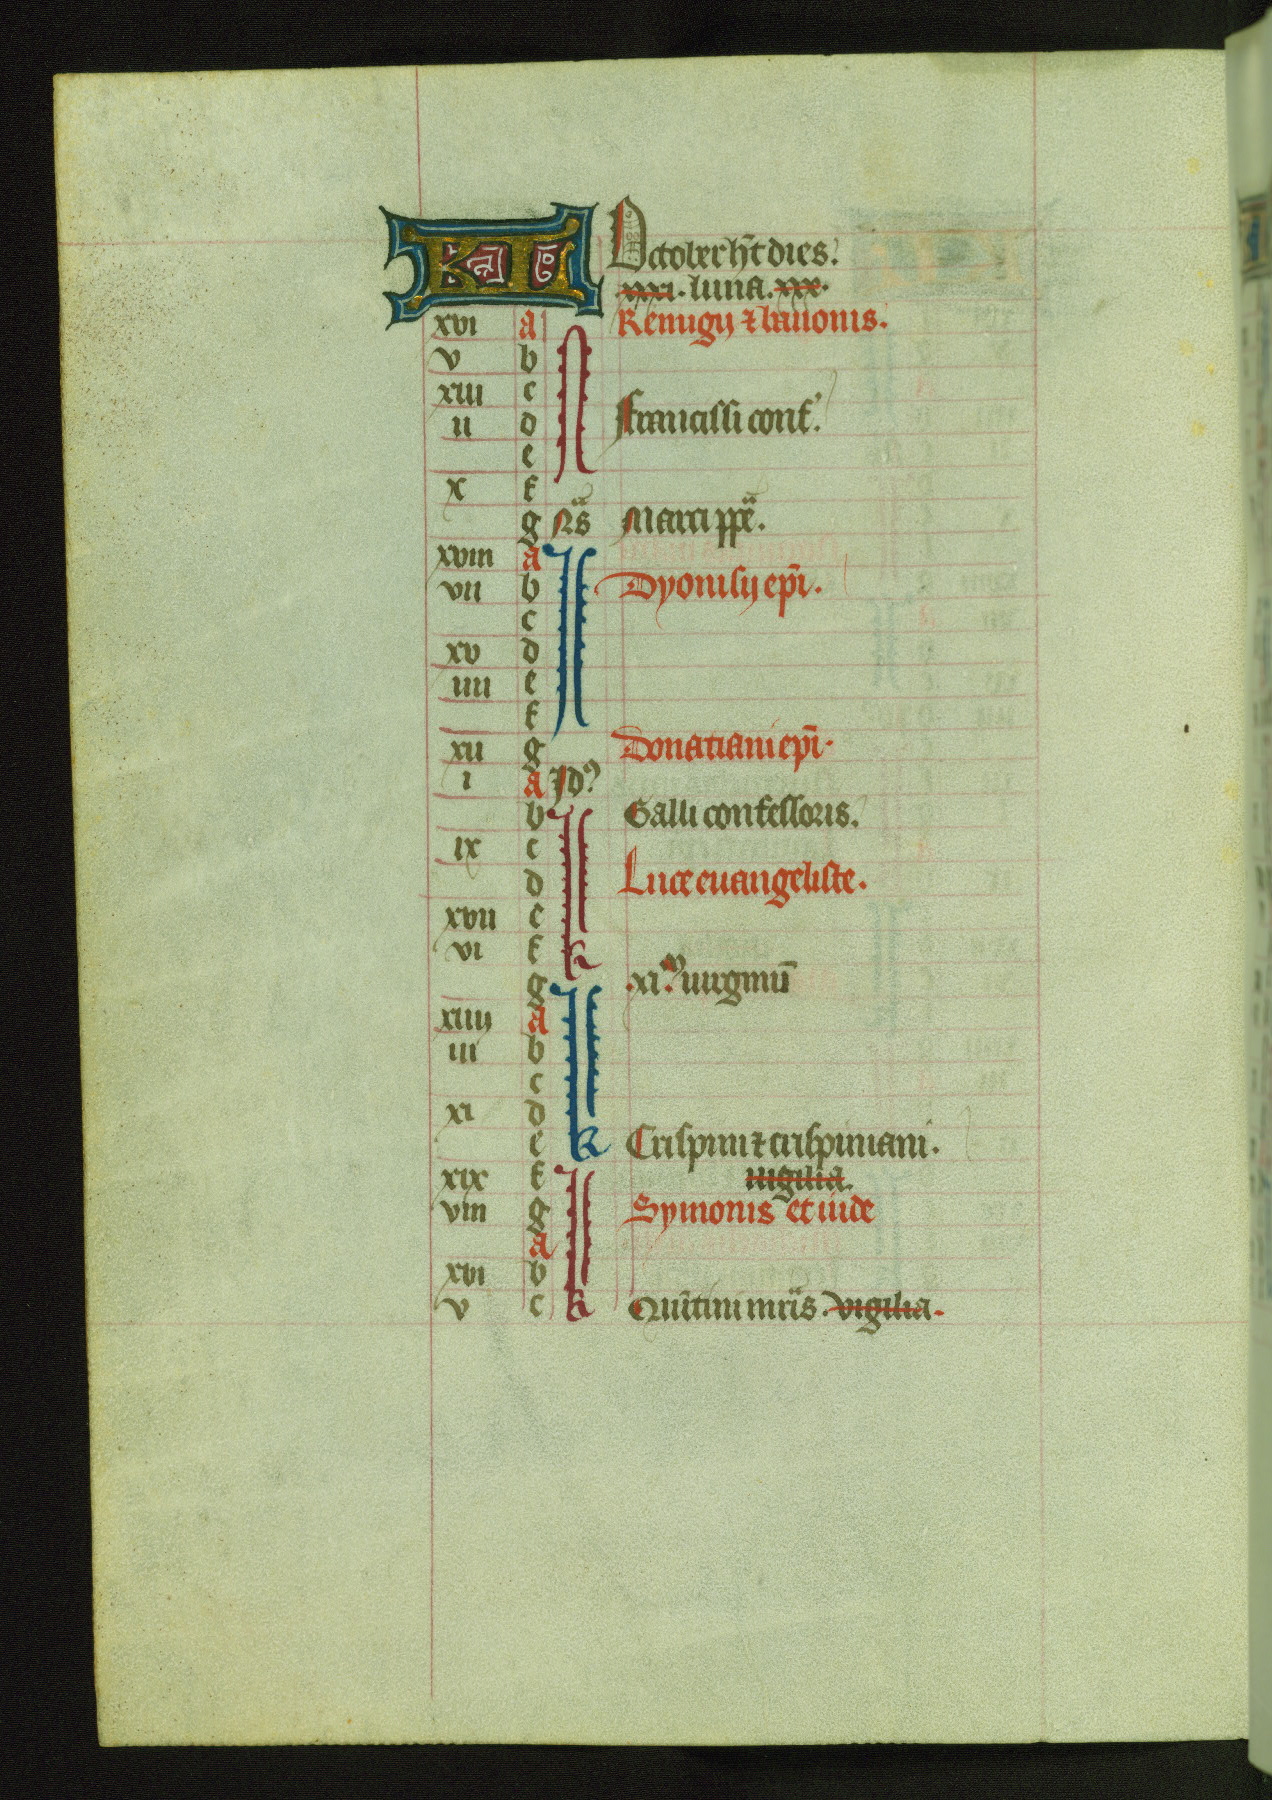 KL October hñt dies.
xxxi. luna. xxx.
xvi a Remigij ⁊ bauonis.
v b
xiii c
ii d Francissi conf'.
e
x f
g Ns̃ Marci ppẽ.
xviii a
vii b Dyonisij ep̃i.
c
xv d
iiii e
f
xii g Donatiani ep̃i.
i a Jdꝰ
b Galli confessoris.
ix c
d Luce euangeliste.
xvii e
vi f k
g .xi.ᵐ uirginũ
xiiij a
iii b
c
xi d
e k Crispini ⁊ crispiniani.
xix f uigilia.
viii g Symonis et iude
a
xvi b
v c k Quĩtini mr̃is. vigilia.